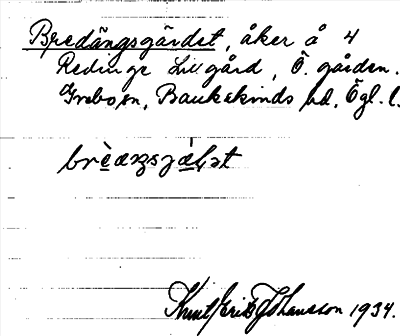 Bredängsgärdet, åker å 4
Redinge Lillgård, Ö. gården.
Grebo sn, Bankekinds hd, Ögl. l.
brèæŋsjæ̀ḷət
Knut Erik Johansson 1934.